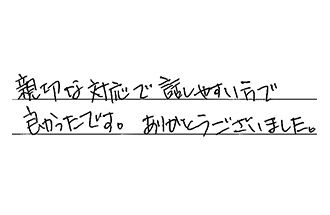 親切な対応で話しやすい方で
良かったです。ありがとうございました。